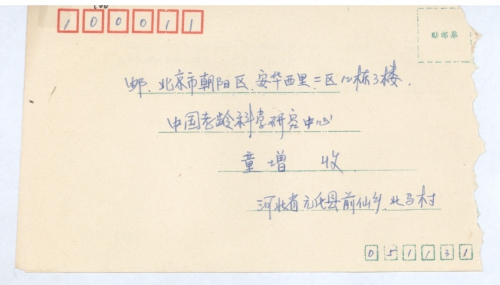 100011
贴邮票
邮.北京市朝阳区.安华西里二区12栋3楼.
中国老龄科学研究中心
童增 收
河北省元氏县前仙乡.北马村
051131